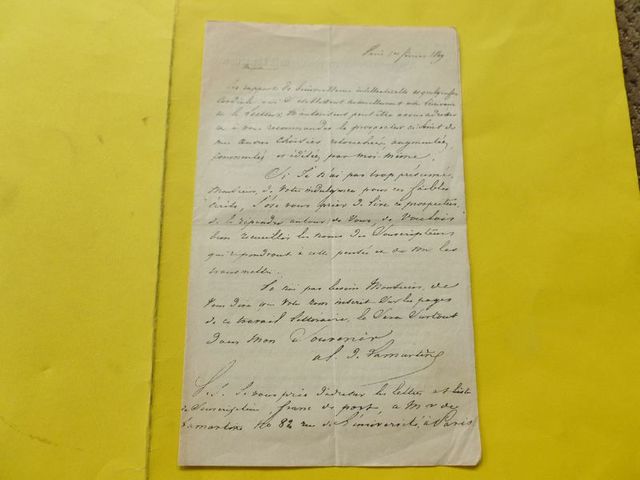 Paris 1er février 1849
Les rapports de bienveillance intellectuelle et quelquefois
cordiale qui s'établissent naturellement entre
et le lecteur, m'autorisent peut être
à vous recommander le prospectus ci joint de
mes œuvres choisies retouchées, augmentées,
commentées et éditées, par moi-même.
Si je n'ai pas trop présumé,
Monsieur, de votre indulgence pour ces faibles
écrits, j'ose vous prier de lire ce prospectus
de le répandre autour de vous, de vouloir
bien recueillir les noms des souscripteurs
qui répondront à cette pensée et de me les
transmettre.
Je n'ai pas besoin Monsieur, de
vous dire que votre nom inscrit sur les pages
de ce travail littéraire, le sera surtout
dans mon Souvenir
al. de Lamartine
P.S. Je vous prie d'adresser les lettres et liste
de Souscription, franc de port, a Mr de
Lamartine No 82 rue de l'université, à Paris